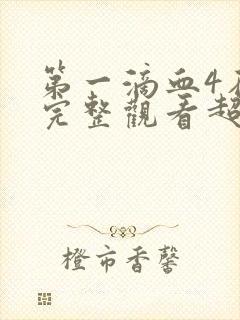 第一滴血4
完整觀看超
橙市香馨